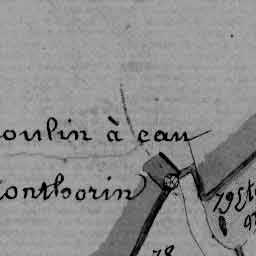 oulin à eau
onthorin
79 Et
78